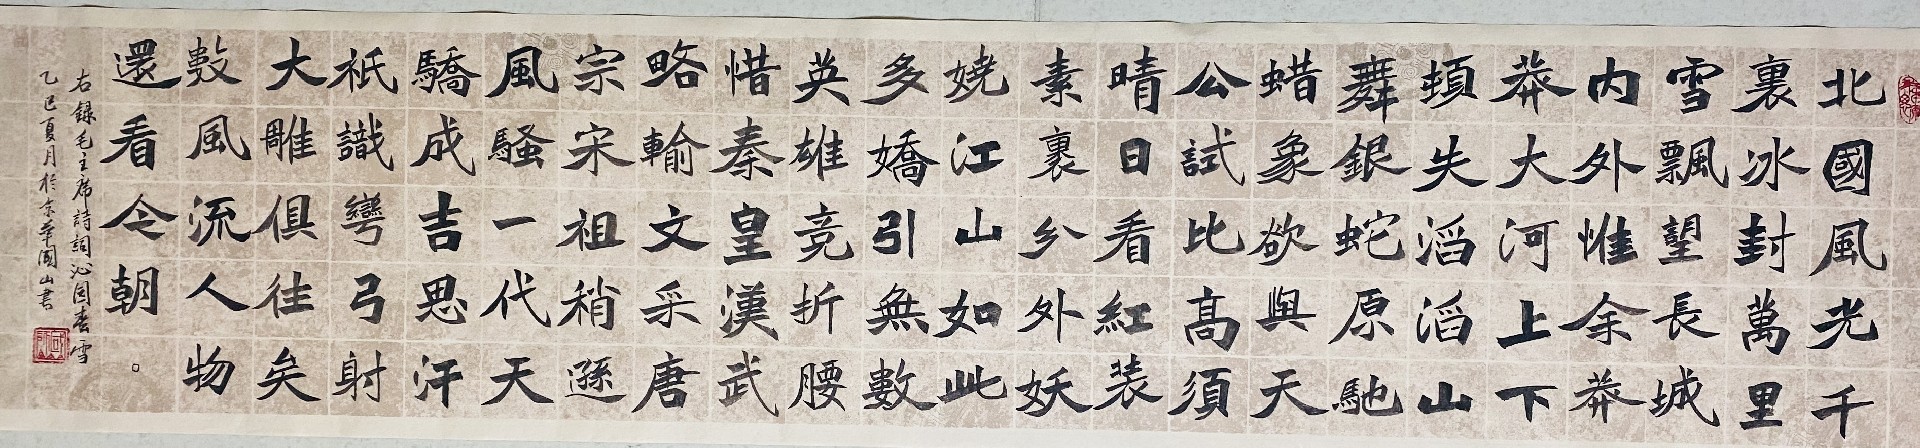 北國風光千
裏冰封萬里
雪飄望長城
内外惟余莽
莽大河上下
頓失滔滔山
舞銀蛇原馳
蜡象欲與天
公試比高須
晴日看紅装
素裹分外妖
嬈江山如此
多嬌引無數
英雄竞折腰
惜秦皇漢武
略輸文采唐
宗宋祖稍遜
風騷一代天
驕成吉思汗
祇識彎弓射
大雕俱往矣
數風流人物
還看今朝。
右録毛主席詩詞沁園春雪
乙巳夏月於京華國山書